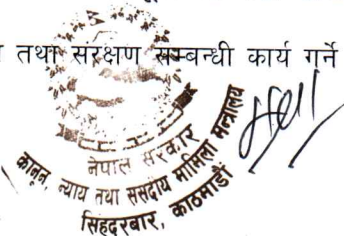 तथा संरक्षण सम्बन्धी कार्य गर्ने
नेपाल सरकार
कानून, न्याय तथा संसदीय मामिला मन्त्रालय
सिंहदरबार, काठमाडौं